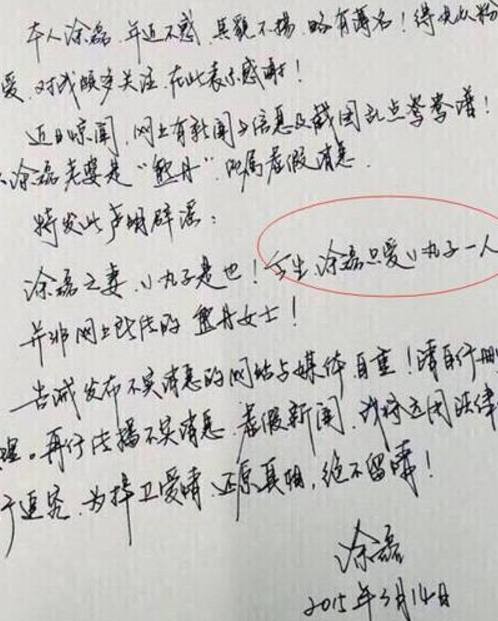 本人涂磊,年近不惑,其貌不扬,略有薄名!得
爱,对我颇多关注,在此表示感谢!
近日惊闻,网上有新闻与信息及截图乱点鸳鸯谱!
涂磊老婆是“熊丹”,所属虚假消息。
特发此声明辟谣:
涂磊之妻,小丸子是也!今生,涂磊只爱小丸子一人
并非网上所传的熊丹女士!
告诫发布不实消息的网站与媒体,自重!请自行删
理。再行传播不实消息,虚假新闻,我将运用法律
于追究,为捍卫爱情,还原真相,绝不留情!
涂磊
2015年3月14日